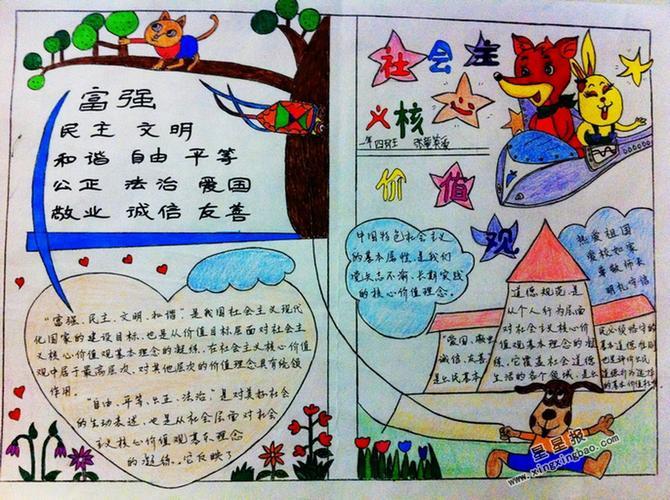 富强
民主 文明
和谐 自由 平等
公正 法治 爱国
敬业 诚信 友善
"富强、民主、文明、和谐"是我国社会主义现代
化国家的建设目标，也是从价值目标层面对社会主
义核心价值观基本理念的凝练，在社会主义核心价值
观中居于最高层次，对其他层次的价值理念具有统领
作用。
"自由、平等、公正、法治"是对美好社会
的生动表述，也是从社会层面对社会
主义核心价值观基本理念
的凝练。它反映了
社会主
义核
四班
价值观
中国特色社会主义
的基本属性，是我们
党矢志不渝、长期实践
的核心价值理念。
"爱国、敬业
诚信、友善
是公民基本
道德规范，是
从个人行为层面
对社会主义核心
价值观基本理念的凝
练。它覆盖社会道德
生活的各个领域，是公
民必须恪守的
基本道德准则
也是评价公民
道德行为选择
的基本价值标
热爱祖国
爱校如家
尊敬师长
明礼守信
星星报
www.xingxingbao.com